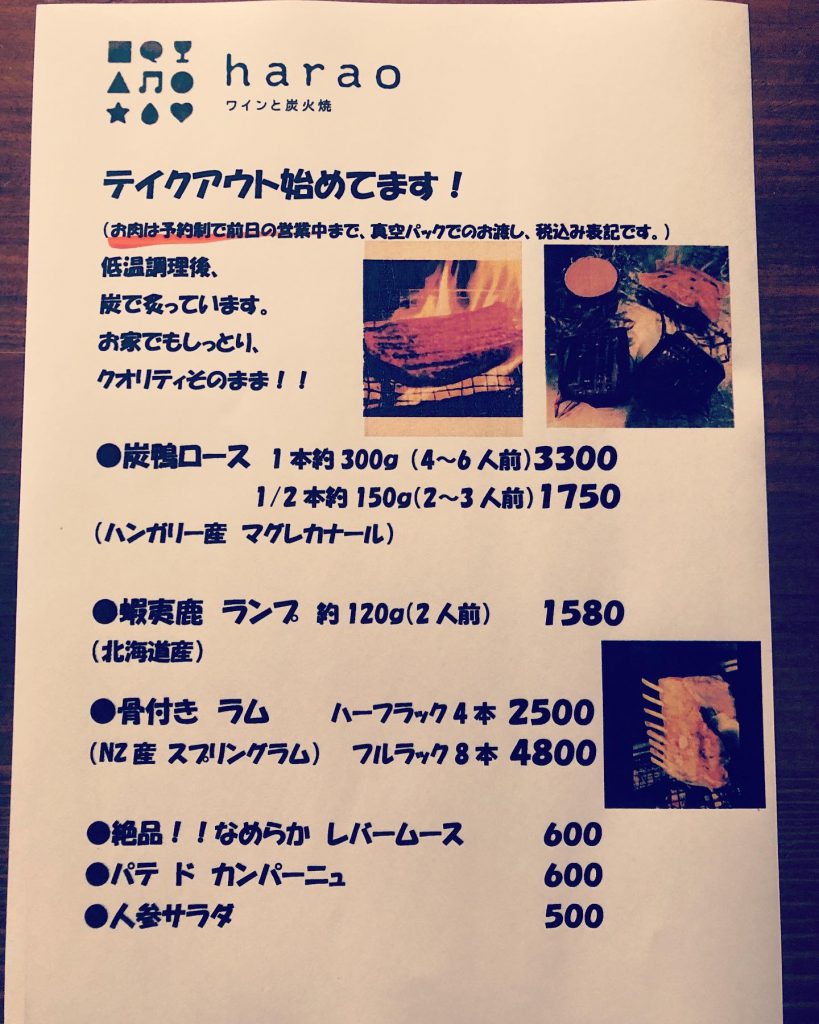 harao
ワインと炭火焼
テイクアウト始めてます！
（お肉は予約制で前日の営業中まで、真空パックでのお渡し、税込み表記です。）
低温調理後、
炭で炙っています。
お家でもしっとり、
クオリティそのまま！！
●炭鴨ロース 1本約300g（4～6人前）3300
1/2本約150g（2～3人前）1750
（ハンガリー産 マグレカナール）
●蝦夷鹿 ランプ 約120g（2人前） 1580
（北海道産）
●骨付き ラム ハーフラック4本 2500
（NZ産 スプリングラム） フルラック8本 4800
●絶品！！なめらか レバームース 600
●パテ ド カンパーニュ 600
●人参サラダ 500